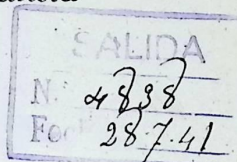 SALIDA
N. 4898
Fec 28.7.41